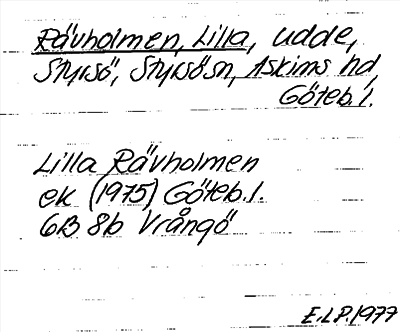 Rävholmen, Lilla, udde,
Styrsö, Styrsösn, Askims hd,
Göteb. l.
Lilla Rävholmen
ek (1975) Göteb. l.
6B 8b Vrångö
E.L.P. 1977